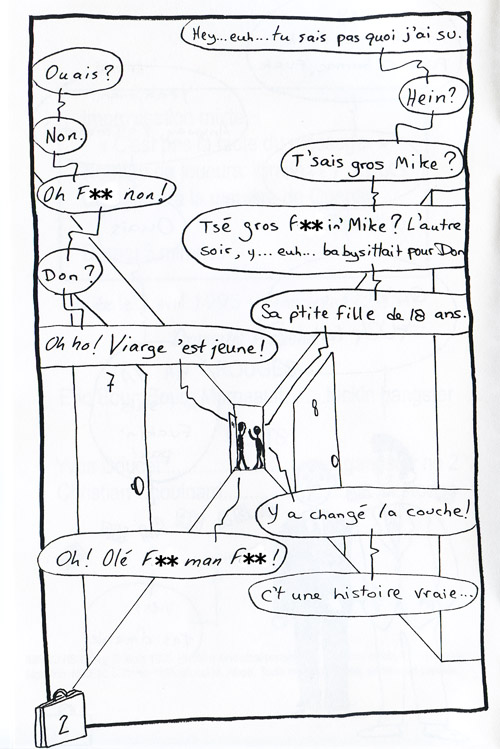 Hey...euh...tu sais pas quoi j'ai su.
Ouais?
Hein?
Non.
T'sais gros Mike?
Oh F** non!
Tsé gros f**in' Mike? L'autre
soir, y... euh... babysittait pour Don
Don?
Sa p'tite fille de 18 ans.
Oh ho! Viarge 'est jeune!
7
8
Y a changé la couche!
Oh! Olé F** man F**!
C't une histoire vraie...
2